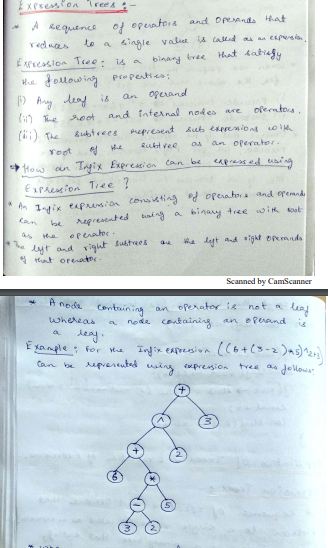 Expression Trees :-
* A sequence of operators and operands that
reduces to a single value is called as an expression.
Expression Tree : is a binary tree that satisfy
the following properties:
(i) Any leaf is an operand
(ii) The root and internal nodes are operators.
(iii) The subtrees represent sub expressions with
root of the subtree as an operator.
How an Infix Expression can be expressed using
Expression Tree ?
* An Infix expression consisting of operators and operands
can be represented using a binary tree with root
as the operator.
* The left and right subtrees are the left and right operands
of that operator.
Scanned by CamScanner
* A node containing an operator is not a leaf
whereas a node containing an operand is
a leaf.
Example : For the Infix expression ((6+(3-2)*5)^2+3)
can be represented using expression tree as follows:
+
^ 3
+ 2
6 *
- 5
3 2